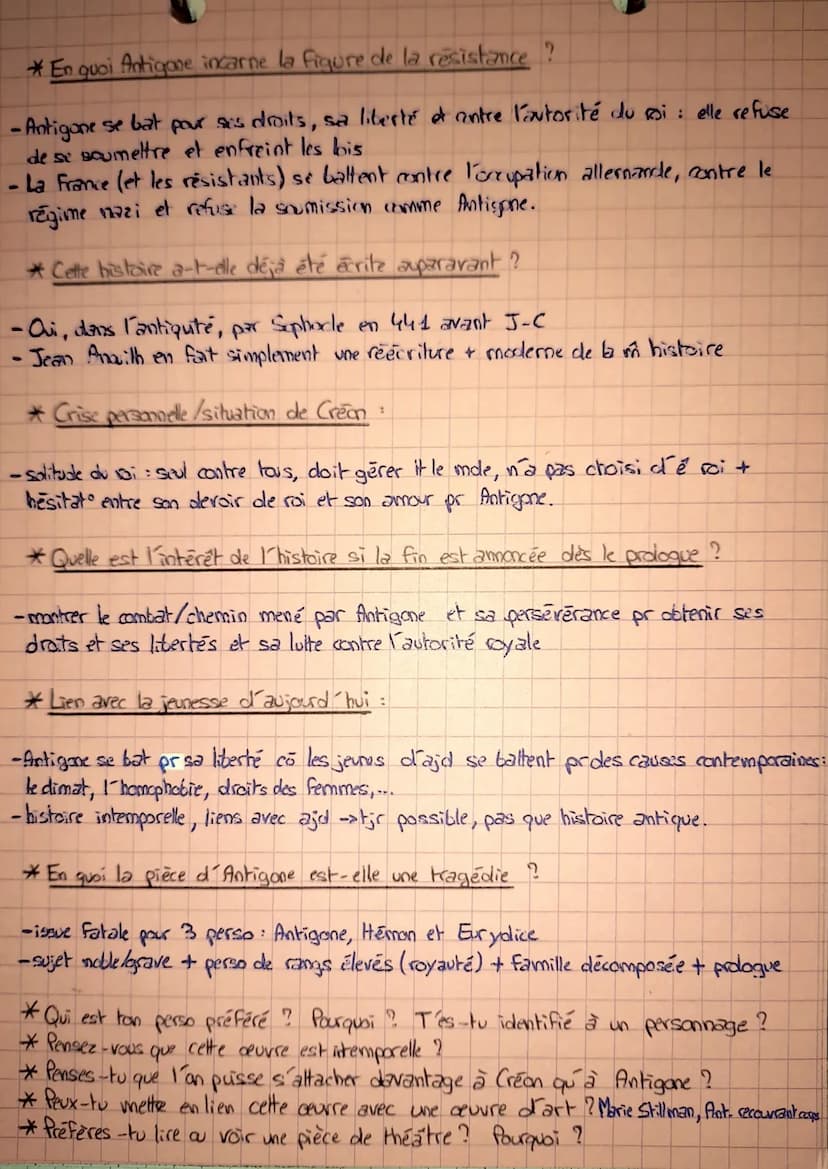 * En quoi Antigone incarne la figure de la résistance ?
- Antigone se bat pour ses droits, sa liberté et contre l'autorité du roi : elle refuse
de se soumettre et enfreint les lois
- La France (et les résistants) se battent contre l'occupation allemande, contre le
régime nazi et refuse la soumission comme Antigone.
* Cette histoire a-t-elle déjà été écrite auparavant ?
- Oui, dans l'antiquité, par Sophocle en 441 avant J-C
- Jean Anouilh en fait simplement une réécriture + moderne de la m̂ histoire
* Crise personnelle/situation de Créon :
- solitude du roi : seul contre tous, doit gérer tt le mde, n'a pas choisi d'ê roi +
hésitat° entre son devoir de roi et son amour pr Antigone.
* Quelle est l'intérêt de l'histoire si la fin est annoncée dès le prologue ?
- montrer le combat/chemin mené par Antigone et sa persévérance pr obtenir ses
droits et ses libertés et sa lutte contre l'autorité royale
* Lien avec la jeunesse d'aujourd'hui :
- Antigone se bat pr sa liberté cō les jeunes d'ajd se battent pr des causes contemporaines :
le climat, l'homophobie, droits des femmes,...
- histoire intemporelle, liens avec ajd -> tjr possible, pas que histoire antique.
* En quoi la pièce d'Antigone est-elle une tragédie ?
- issue fatale pour 3 perso : Antigone, Hémon et Eurydice
- sujet noble/grave + perso de rangs élevés (royauté) + famille décomposée + prologue
* Qui est ton perso préféré ? Pourquoi ? T'es-tu identifié à un personnage ?
* Pensez-vous que cette œuvre est intemporelle ?
* Penses-tu que l'on puisse s'attacher davantage à Créon qu'à Antigone ?
* Peux-tu mettre en lien cette œuvre avec une œuvre d'art ? Marie Stillman, Ant. recouvrant corps
* Préfères-tu lire ou voir une pièce de théâtre ? Pourquoi ?